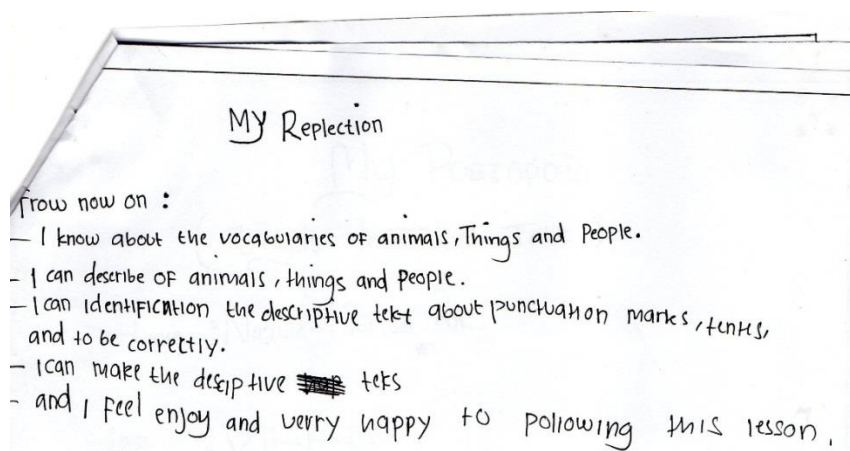 My Replection
From now on :
- I know about the vocabularies of animals, Things and People.
- I can describe of animals, things and People.
- I can identification the descriptive tekt about punctuation marks, tenses,
and to be correctly.
- I can make the desciptive teks
- and I feel enjoy and verry happy to pollowing this lesson.